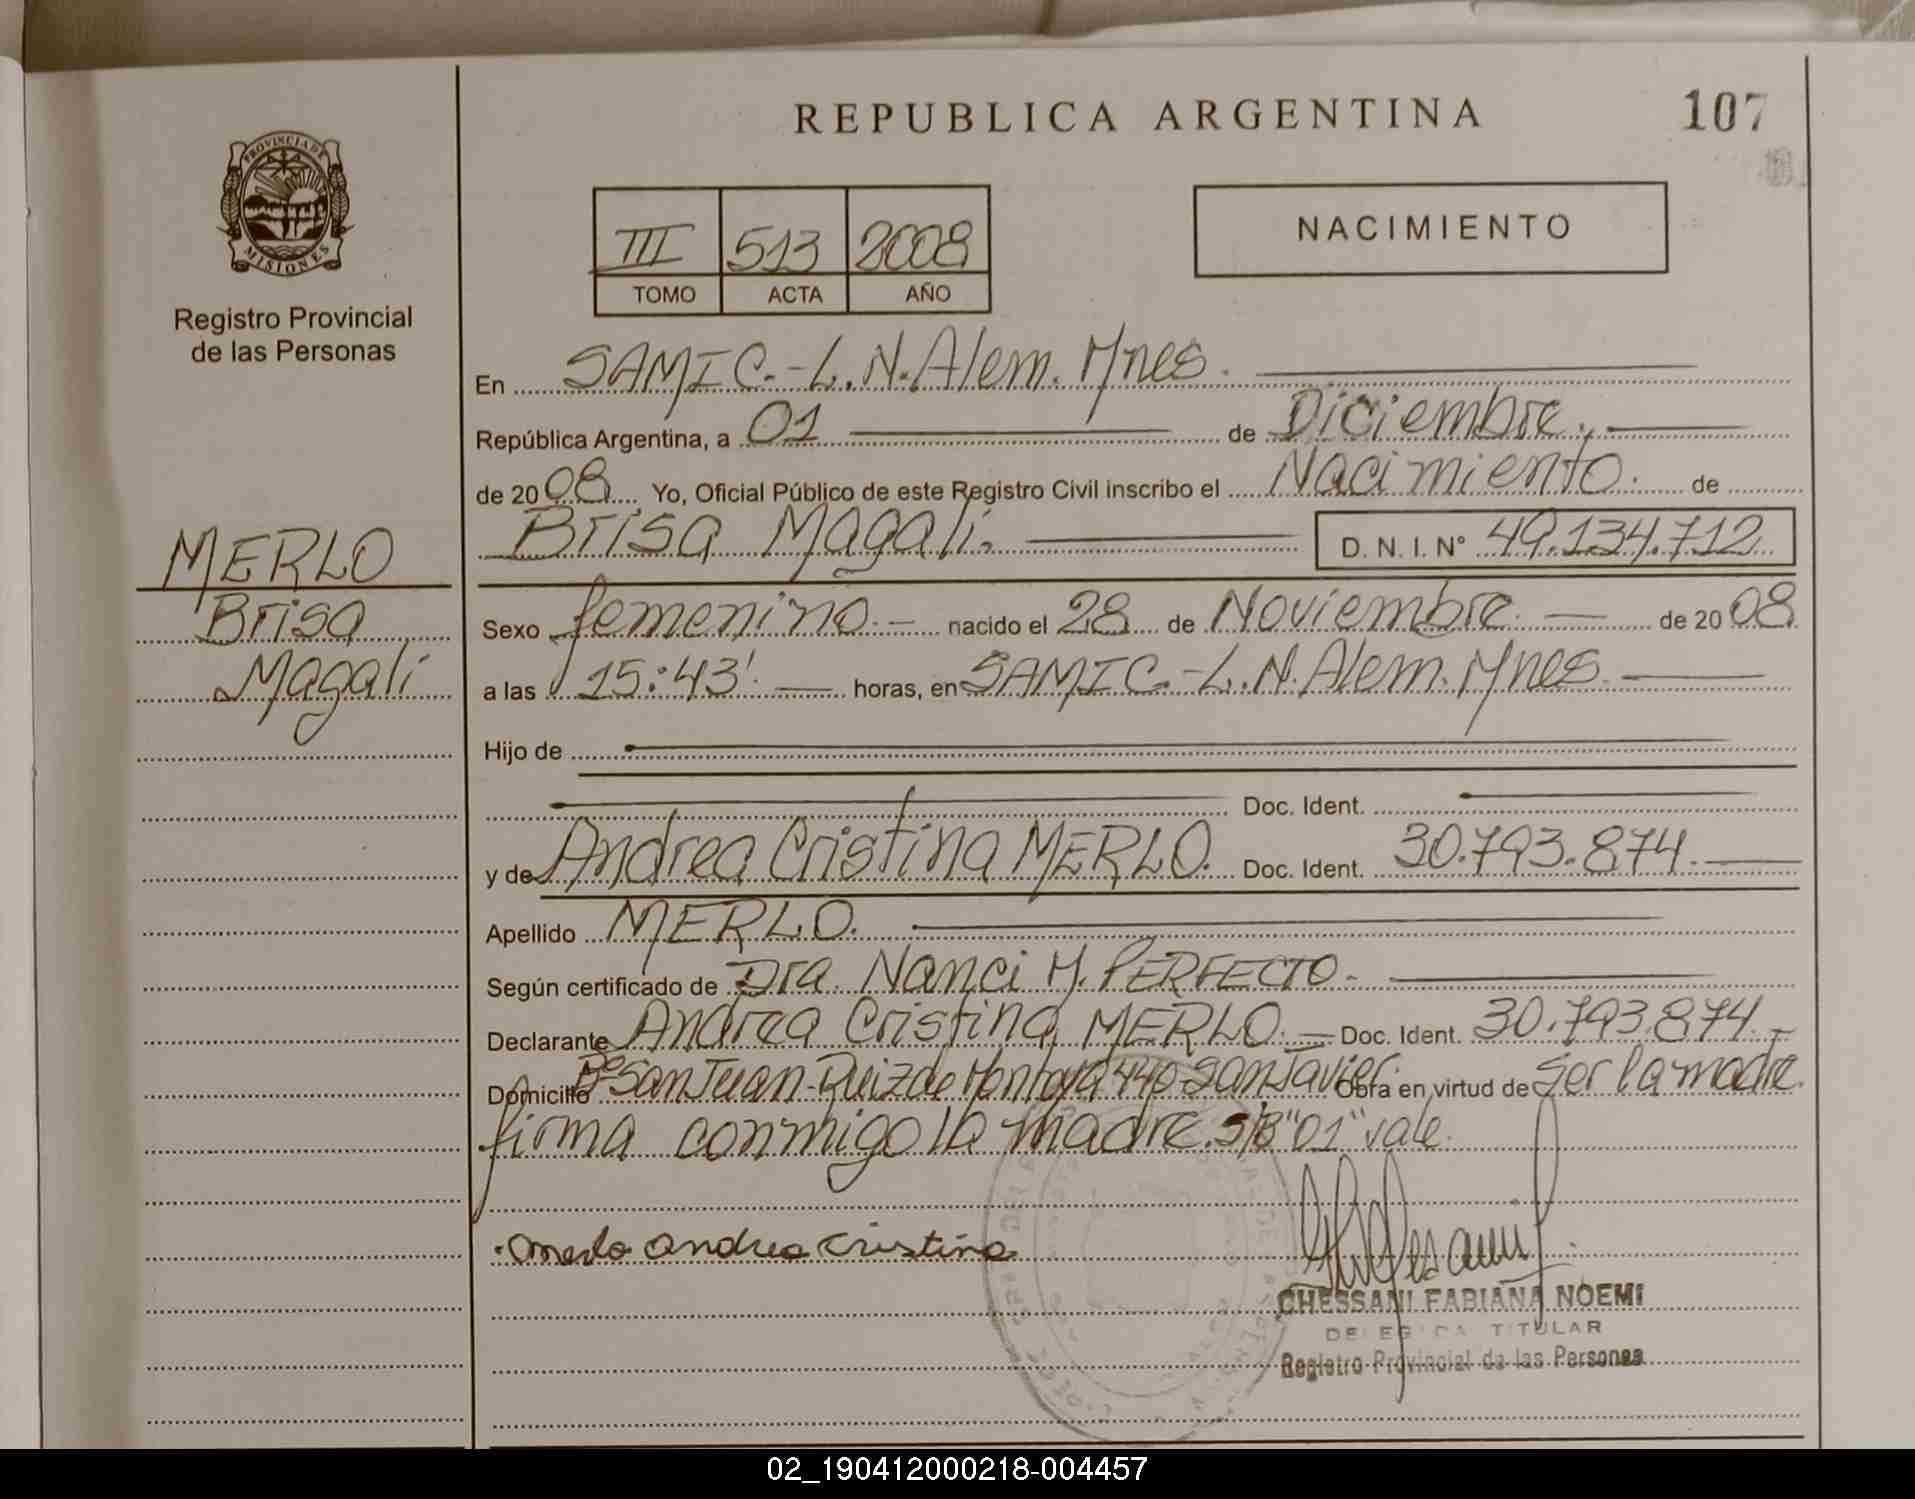 REPUBLICA ARGENTINA
107
PROVINCIA DE
MISIONES
Registro Provincial
de las Personas
III 513 2008
TOMO ACTA AÑO
NACIMIENTO
En SAMIC.-L.N.Alem.Mnes.
República Argentina, a 01 de Diciembre.
de 2008. Yo, Oficial Público de este Registro Civil inscribo el Nacimiento. de
Brisa Magali. D. N. I. N° 49.134.712
MERLO
Brisa
Magali
Sexo femenino.- nacido el 28 de Noviembre. de 2008
a las 15:43'. horas, en SAMIC.-L.N.Alem.Mnes.
Hijo de
Doc. Ident.
y de Andrea Cristina MERLO. Doc. Ident. 30.793.874.
Apellido MERLO.
Según certificado de Dra. Nanci M. PERFECTO.-
Declarante Andrea Cristina MERLO.- Doc. Ident. 30.793.874.-
Domicilio B° San Juan-Ruiz de Montoya 440-San Javier. Obra en virtud de ser la madre.
firma conmigo la madre. S/B "01" vale.
Merlo Andrea Cristina
GHESSANI FABIANA NOEMI
DELEGADA TITULAR
Registro Provincial de las Personas
02_190412000218-004457